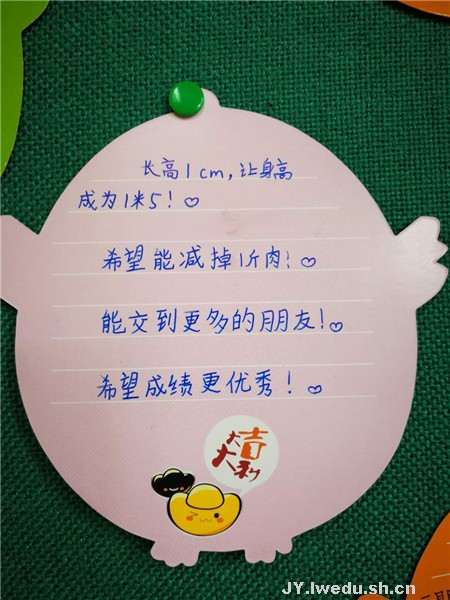 长高1cm,让身高
成为1米5!♡
希望能减掉1斤肉!♡
能交到更多的朋友!♡
希望成绩更优秀!♡
大吉
大利
JY.lwedu.sh.cn